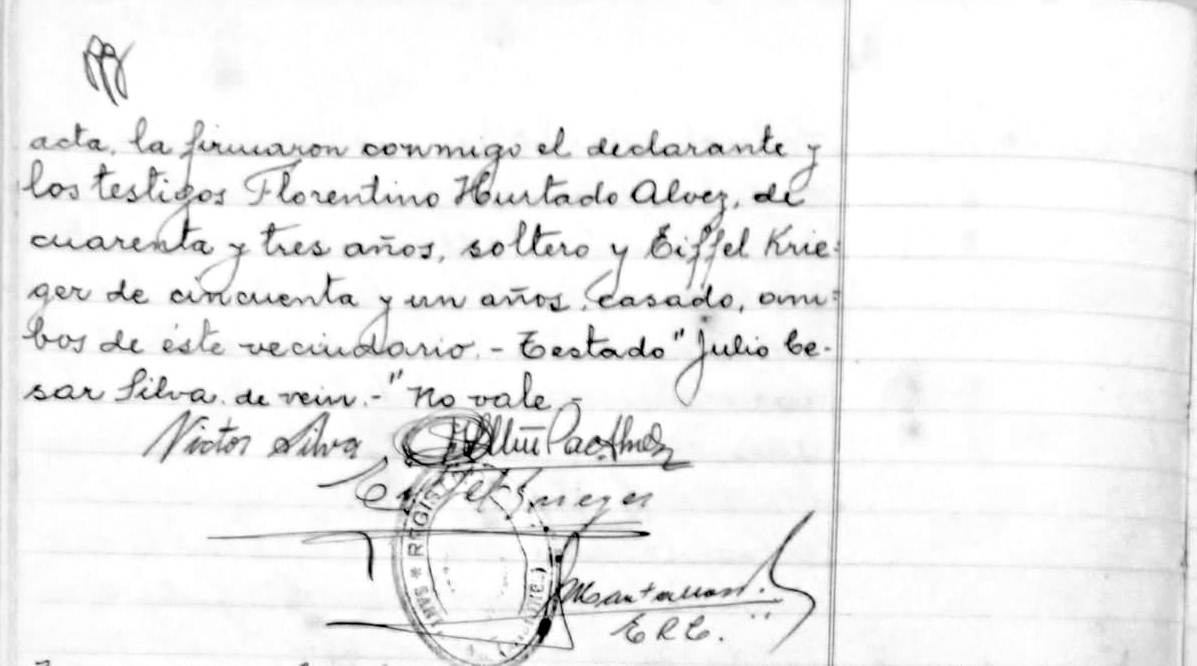 acta, la firmaron conmigo el declarante y
los testigos Florentino Hurtado Alvez, de
cuarenta y tres años, soltero y Eiffel Krie=
ger de cincuenta y un años, casado, am=
bos de éste vecindario.- Testado "Julio Ce-
sar Silva de vein.-" No vale -
Victor Silva
Eiffel Krieger
* REGIS
SANT